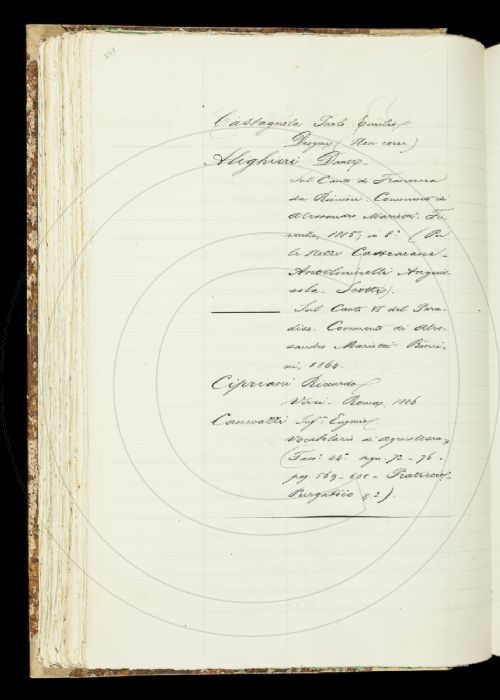 Castagnola Paolo Emilio
Disegni (Non corre)
Alighieri Dante
Sul Canto di Francesca
da Rimini. Commento di
Alessandro Mariotti. Fi
renze, 1885; in 8° (Per
le Nozze Castracane-
Antelminelli Anguis
sola - Scotti).
Sul Canto VI del Para-
diso. Commento di Ales-
sandro Mariotti. Rimi-
ni, 1864.
Cipriani Riccardo
Versi. Roma, 1886
Canevazzi Ing. Eugenio
Vocabolario di Agricoltura,
(Fasc. 24° segn. 72-76-
pag. 569-608 -
Purgatoio § 2).